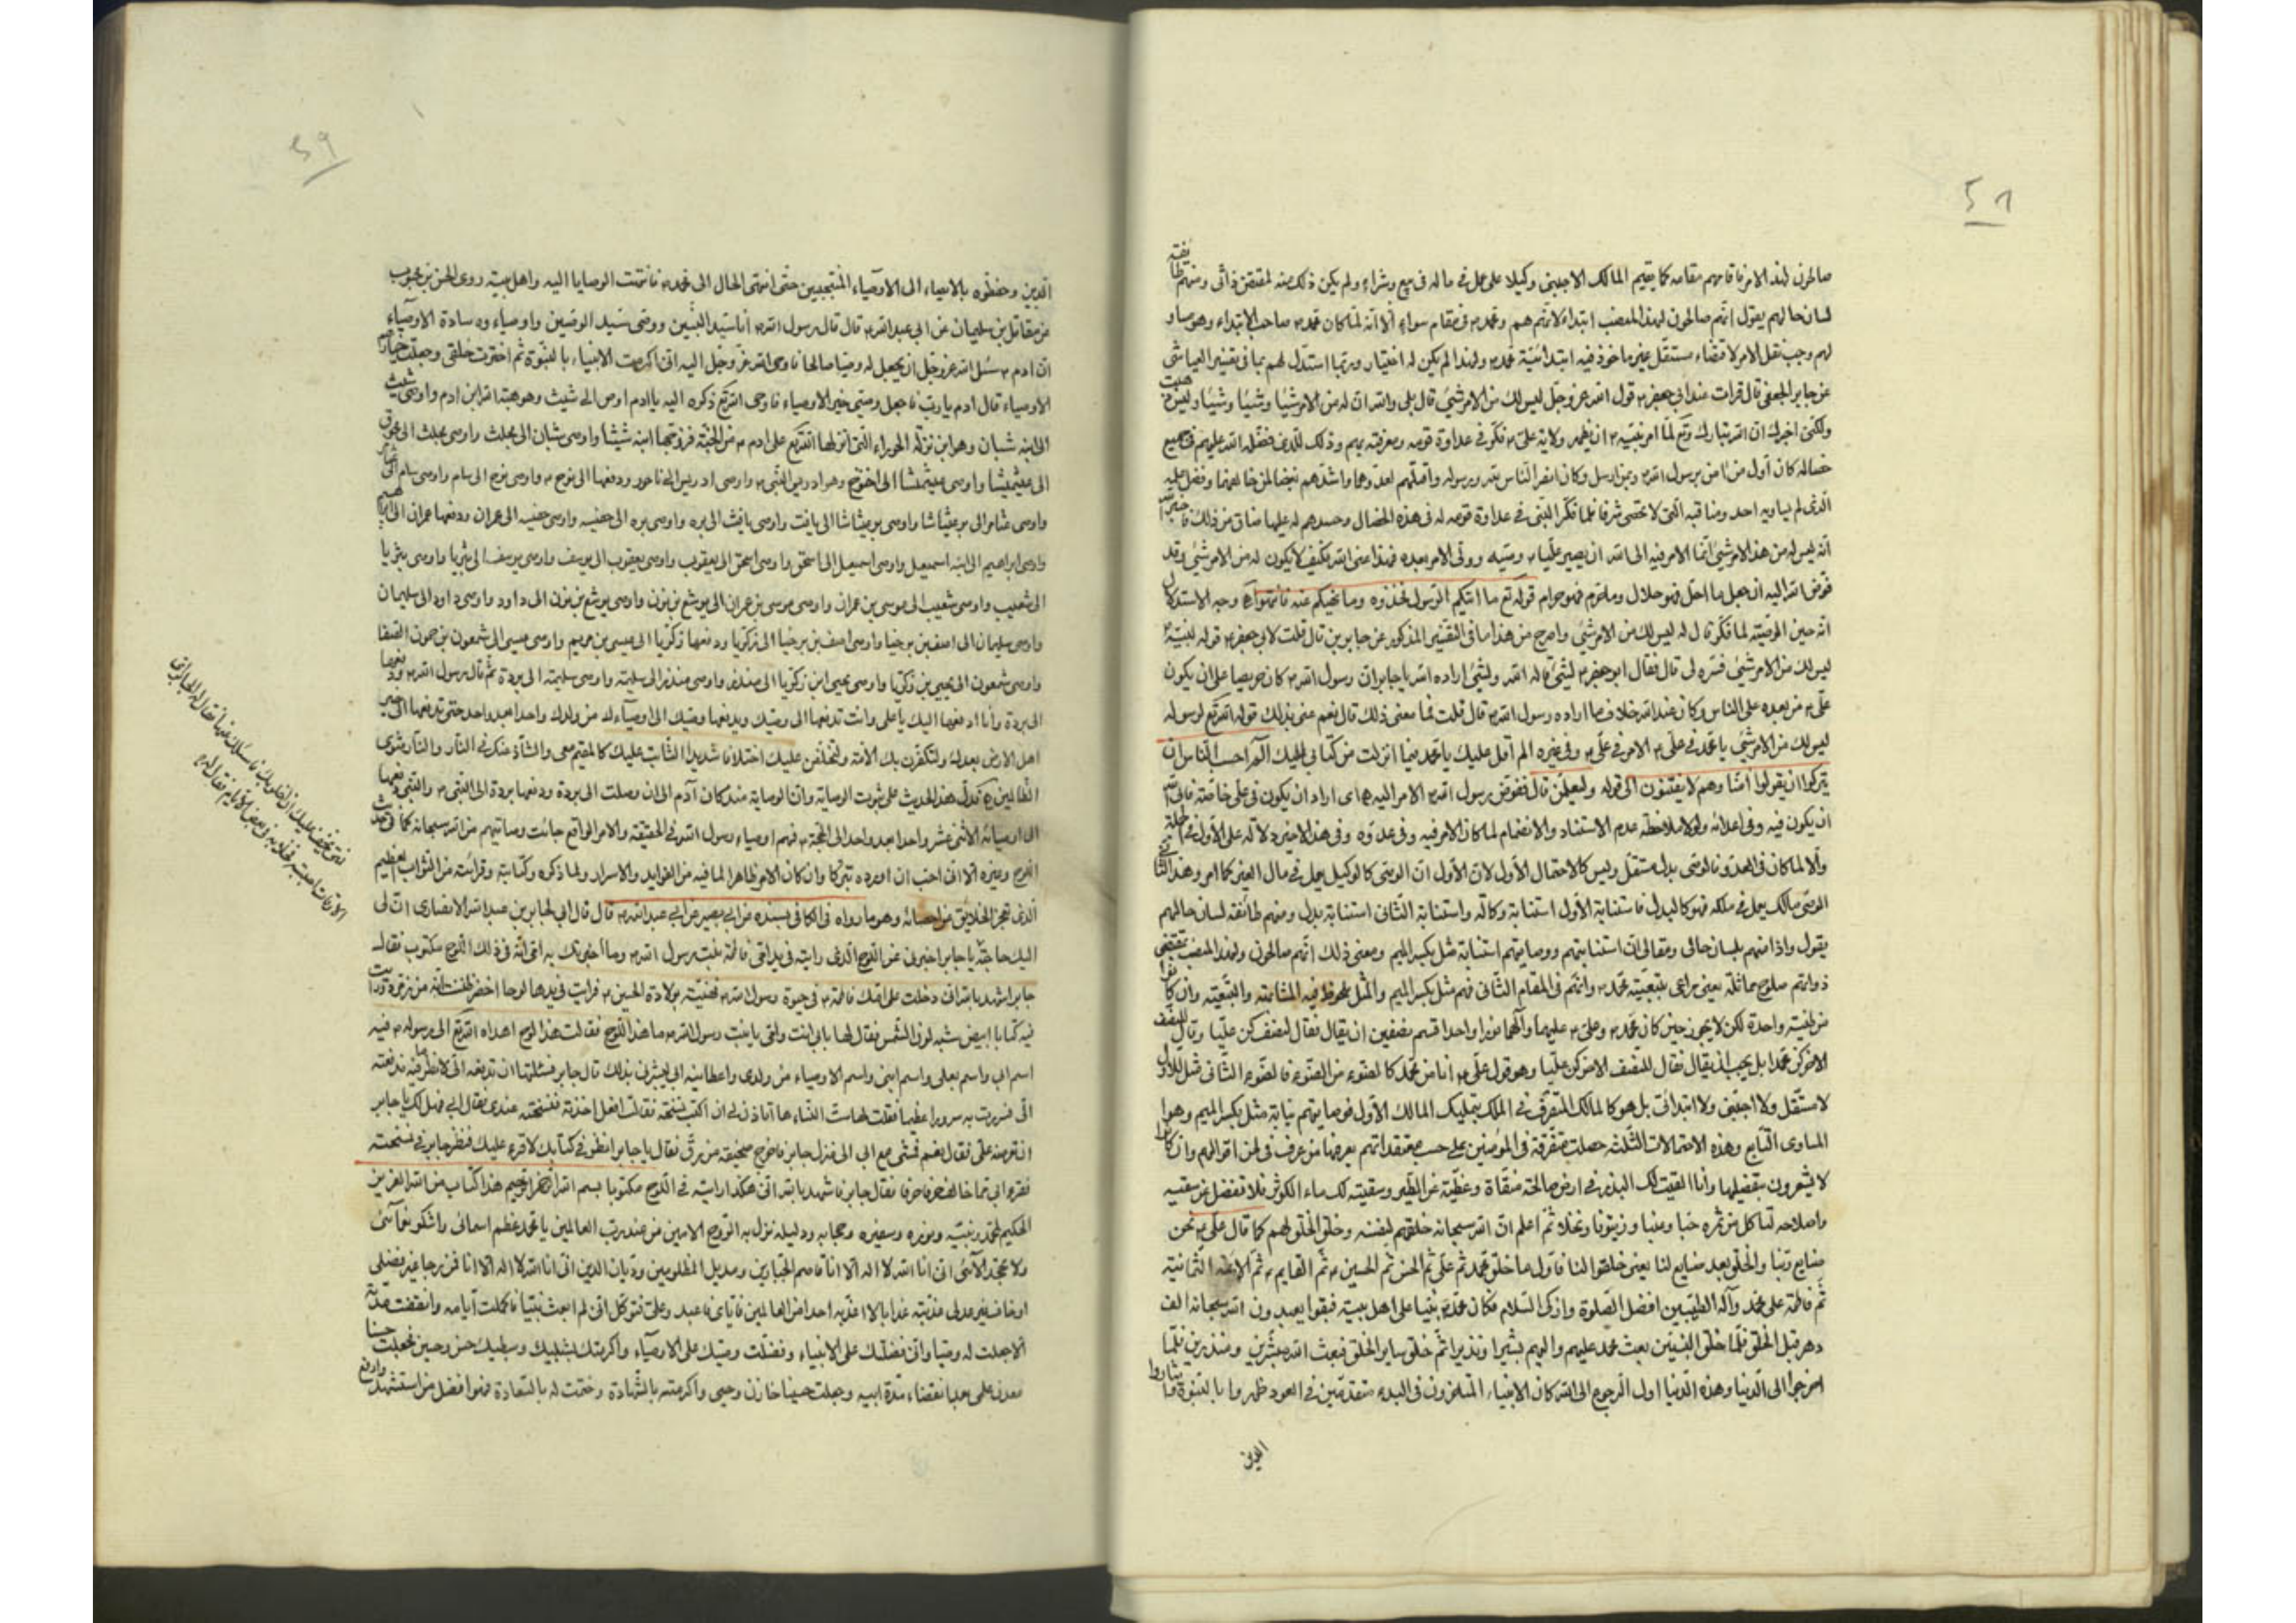 ٥٨
صالحون لهذا الامر فاقامهم مقامه كما يقيم المالك الاجنبى وكيلا على عمل فى ماله فى بيع وشراء ولم يكن ذلك منه لمقتض ذاتى ومنهم طائفة
لسان حالهم يقول انهم صالحون لهذا المنصب ابتداء لانهم هم ومحمد ص فى مقام سواء الا انه لما كان محمد ص صاحب الابتداء وهو مساو
لهم وجب نقل الامر لاقتضاء مستقل غير ماخوذ فيه ابتدائية محمد ص ولهذا لم يكن له اختيار وربما استدل لهم بما فى تفسير العياشى
عن جابر الجعفى قال قرات عند ابى جعفر ع قول الله عز وجل ليس لك من الامر شئ قال بلى والله ان له من الامر شيئا وشيئا وشيئا وليس حيث
ولكنى اخبرك ان الله تبارك وتع لما امر نبيه ص ان يظهر ولاية على ع فكر فى عداوة قومه ومعرفته بهم وذلك للذى فضله الله عليهم فى جميع
خصاله كان اول من امن برسول الله ص وبمن ارسله وكان انصر الناس لله ورسوله واقتلهم لعدوهما واشدهم بغضا لمن خالفهما وفضل علمه
الذى لم يساويه احد ومناقبه التى لا تحصى شرفا فلما فكر النبى فى عداوة قومه له فى هذه الخصال وحسدهم له عليها ضاق من ذلك فاخبر الله
انه ليس له من هذا الامر شئ انما الامر فيه الى الله ان يصير عليا ع وصيه وولى الامر بعده فهذا عنى الله فكيف لا يكون له من الامر شئ وقد
فوض الله اليه ان جعل ما احل فهو حلال وما حرم فهو حرام قوله تع ما اتيكم الرسول فخذوه وما نهيكم عنه فانتهوا ه وجه الاستدلال
انه حين الوصية لما فكر قال له ليس لك من الامر شئ واصرح من هذا ما فى التفسير المذكور عن جابر بن قال قلت لابى جعفر ع قوله لنبيه ص
ليس لك من الامر شئ فسره لى قال فقال ابو جعفر ع لشئ قاله الله ولشئ اراده الله يا جابر ان رسول الله ص كان حريصا على ان يكون
على ع من بعده على الناس وكان عند الله خلاف ما اراده رسول الله ص قال قلت فما معنى ذلك قال نعم عنى بذلك قوله الله تع لرسوله
ليس لك من الامر شئ يا محمد فى على ع الامر فى على ع وفى غيره الم اقل عليك يا محمد فيما انزلت من كتابى اليك الم احسب الناس ان
يتركوا ان يقولوا امنا وهم لا يفتنون الى قوله وليعلمن قال ففوض رسول الله ص الامر اليه ه اى اراد ان يكون فى على خاصة فابى الله
ان يكون فيه وفى اعدائه ولولا ملاحظة عدم الاستناد والانضمام لما كان الامر فيه وفى عدوه وفى هذا الاخير دلالة على الاول فى الجملة
والا لما كان فى العدو فالوصى بدل مستقل وليس كالاحتمال الاول لان الاول ان الوصى كالوكيل يعمل فى مال الغير كما امر وهذا الثانى
الوصى مالك يعمل فى ملكه فهو كالبدل فاستنابة الاول استنابة وكالة واستنابة الثانى استنابة بدل ومنهم طائفة لسان حالهم
يقول واذا منهم بلسان حالى ومقالى ان استنابتهم ووصايتهم استنابة مثل بكسر الميم ومعنى ذلك انهم صالحون ولهذا المنصب بمقتضى
ذواتهم صلوح مماثلة يعنى مراعى بتبعية محمد ص وانهم فى المقام الثانى فهم مثل بكسر الميم والمثل ملحوظ فيه المشابهة والتبعية وان كانوا
من طينة واحدة لكن لا يجوز حين كان محمد ص وعلى ع عليهما وآلهما نورا واحدا قسم نصفين ان يقال فقال لنصف كن عليا وقال للنصف
الاخر كن محمدا بل يجب ان يقال فقال للنصف الاخر كن عليا وهو قول على ع انا من محمد كالضوء من الضوء فالضوء الثانى مثل للاول
لا مستقل ولا اجنبى ولا ابتدائى بل هو كالمالك المتصرف فى الملك بتمليك المالك الاول فوصايتهم نيابة مثل بكسر الميم وهو
المساوى التابع وهذه الاحتمالات الثلثة حصلت متفرقة فى المؤمنين على حسب معتقداتهم يعرفها من عرف فى لحن اقوالهم وان كانوا
لا يشعرون بتفصيلها وانا القيت لك البذر فى ارض صالحة منقاة وغطيته عن الطير وسقيته لك ماء الكوثر فلا تغفل عن سقيه
واصلاحه لتاكل من ثمره حبا وعنبا وزيتونا ونخلا ثم اعلم ان الله سبحانه خلقهم لنفسه وخلق الخلق لهم كما قال على ع نحن
صنايع ربنا والخلق بعد صنايع لنا يعنى خلقوا لنا فاول ما خلق محمد ثم على ثم الحسن ثم الحسين ع ثم القايم ع ثم الائمة الثمانية
ثم فاطمة على محمد وآله الطيبين افضل الصلوة وازكى السلام فكان محمد ص نبيا على اهل بيته فبقوا يعبدون الله سبحانه الف
دهر قبل الخلق فلما خلق النبيين بعث محمد عليهم واليهم بشيرا ونذيرا ثم خلق ساير الخلق فبعث الله مبشرين ومنذرين فلما
اخرجوا الى الدنيا وهذه الدنيا اول الرجوع الى الله كان الانبياء المتاخرون فى البدء متقدمين فى العود ظهروا بالنبوة
الدين
٥٩
الدين وحفظوه بالانبياء الى الاوصياء المنتجبين حتى انتهى الحال الى محمد ص فانتهت الوصايا اليه واهل بيته روى الحسن بن محبوب
عن مقاتل بن سليمان عن ابى عبدالله ع قال قال رسول الله ص انا سيد النبيين ووصى سيد الوصيين واوصياءه سادة الاوصياء
ان ادم ع سئل الله عز وجل ان يجعل له وصيا صالحا فاوحى الله عز وجل اليه انى اكرمت الانبياء بالنبوة ثم اخترت خلقى وجعلت خيارهم
الاوصياء قال ادم يا رب فاجعل وصيى خير الاوصياء فاوحى الله تع ذكره اليه يا ادم اوص الى شيث وهو هبة الله ابن ادم واوصى شيث
الى ابنه شبان وهو ابن نزلة الحوراء التى انزلها الله تع على ادم ع من الجنة فزوجها ابنه شيثا واوصى شبان الى محلث واوصى محلث الى محوق
الى عثميشا واوصى عثميشا الى اخنوخ وهو ادريس النبى ع واوصى ادريس الى ناحور ودفعها الى نوح ع واوصى نوح الى سام واوصى سام الى عثامر
واوصى عثامر الى برعيثاشا واوصى برعيثاشا الى يافث واوصى يافث الى بره واوصى بره الى جفيسه واوصى جفيسه الى عمران ودفعها عمران الى ابراهيم
واوصى ابراهيم الى ابنه اسمعيل واوصى اسمعيل الى اسحق واوصى اسحق الى يعقوب واوصى يعقوب الى يوسف واوصى يوسف الى بثريا واوصى بثريا
الى شعيب واوصى شعيب الى موسى بن عمران واوصى موسى بن عمران الى يوشع بن نون واوصى يوشع بن نون الى داود واوصى داود الى سليمان
واوصى سليمان الى اصف بن برخيا واوصى اصف بن برخيا الى زكريا ودفعها زكريا الى عيسى بن مريم واوصى عيسى الى شمعون بن حمون الصفا
واوصى شمعون الى يحيى بن زكريا واوصى يحيى ابن زكريا الى منذر واوصى منذر الى سليمة واوصى سليمة الى بردة ثم قال رسول الله ص ودفعها
الى بردة وانا ادفعها اليك يا على وانت تدفعها الى وصيك ويدفعها وصيك الى اوصيآء له من ولدك واحدا بعد واحد حتى تدفعها الى خير
اهل الارض بعدك ولتكفرن بك الامة ولتختلفن عليك اختلافا شديدا الثابت عليك كالمقيم معى والشاذ عنك فى النار والنار مثوى
الظالمين ه فدل هذا الحديث على ثبوت الوصاية وان الوصاية منذ كان آدم الى ان وصلت الى بردة ودفعها بردة الى النبى ص والنبى دفعها
الى اوصيائه الاثنى عشر واحدا بعد واحد الى الحجة ع فهم اوصياء رسول الله فى الحقيقة والامر الواقع جائت وصايتهم من الله سبحانه كما فى حديث
اللوح وغيره الا انى احب ان اورده تبركا وان كان الامر ظاهرا لما فيه من الفوايد والاسرار ولما ذكره وكتابته وقرائته من الثواب العظيم
الذى تعجز الخلايق عن احصائه وهو ما رواه فى الكافى بسنده عن ابى بصير عن ابى عبدالله ع قال قال ابى لجابر بن عبدالله الانصارى ان لى
اليك حاجة
يا جابر اخبرنى عن اللوح الذى رايته فى يد امى فاطمة بنت رسول الله ص وما اخبرتك به امى انه فى ذلك اللوح مكتوب فقال
جابر اشهد بالله انى دخلت على امك فاطمة ع فى حيوة رسول الله ص فهنيته بولادة الحسين ع فرايت فى يدها لوحا اخضر ظننت انه من زمرد ورايت
فيه كتابا ابيض شبه لون الشمس فقال لها بابى انت وامى يا بنت رسول الله ص ما هذا اللوح فقالت هذا لوح اهداه الله تع الى رسوله ص فيه
اسم ابى واسم بعلى واسم ابنى واسم الاوصياء من ولدى واعطانيه ابى ليبشرنى بذلك قال جابر فسئلتها ان تدفعه الى لانظر فيه فدفعته
الى فسررت به سرورا عظيما فقلت لها ست النساء هل تاذنى لى ان اكتب نسخته فقالت افعل اخذته فنسخته عندى فقال ابى فهل لك يا جابر
ان تعرضه على فقال نعم فمشى مع ابى الى منزل جابر فاخرج صحيفة من رق فقال يا جابر انظر فى كتابك لاقرء عليك فنظر جابر فى نسخته
فقرء ابى فما خالف حرف حرفا فقال جابر فاشهد بالله انى هكذا رايته فى اللوح مكتوبا بسم الله الرحمن الرحيم هذا كتاب من الله العزيز
الحكيم لمحمد نبيه ونوره وسفيره وحجابه ودليله نزل به الروح الامين من عند رب العالمين يا محمد عظم اسمائى واشكر نعمآئى
ولا تجحد الآئى انى انا الله لا اله الا انا قاصم الجبارين ومديل المظلومين وديان الدين انى انا الله لا اله الا انا فمن رجا غير فضلى
او خاف غير عدلى عذبته عذابا لا اعذبه احدا من العالمين فاياى فاعبد وعلى فتوكل انى لم ابعث نبيا فاكملت ايامه وانقضت مدته
الا جعلت له وصيا وانى فضلتك على الانبياء وفضلت وصيك على الاوصيآء واكرمتك بشبليك وسبطيك حسن وحسين فجعلت حسنا
معدن علمى بعد انقضاء مدة ابيه وجعلت حسينا خازن وحيى واكرمته بالشهادة وختمت له بالسعادة فهو افضل من استشهد وارفع